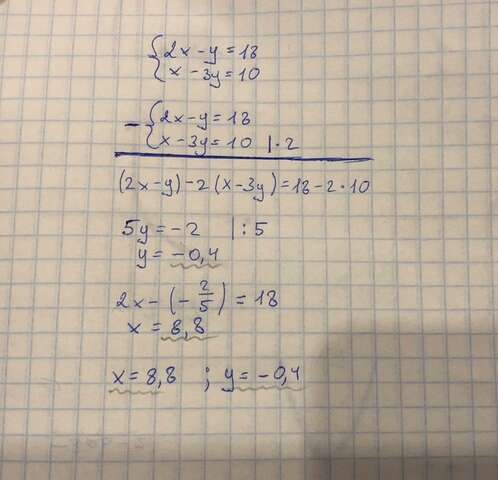 {2x-y=18
{x-3y=10
-{2x-y=18
{x-3y=10 |·2
(2x-y)-2(x-3y)=18-2·10
5y=-2 |:5
y=-0,4
2x-(-2/5)=18
x=8,8
x=8,8 ; y=-0,4